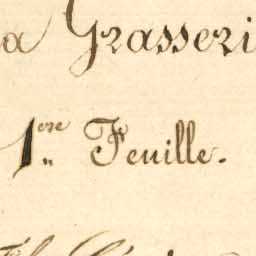 a Grasseri
1.ere Feuille.